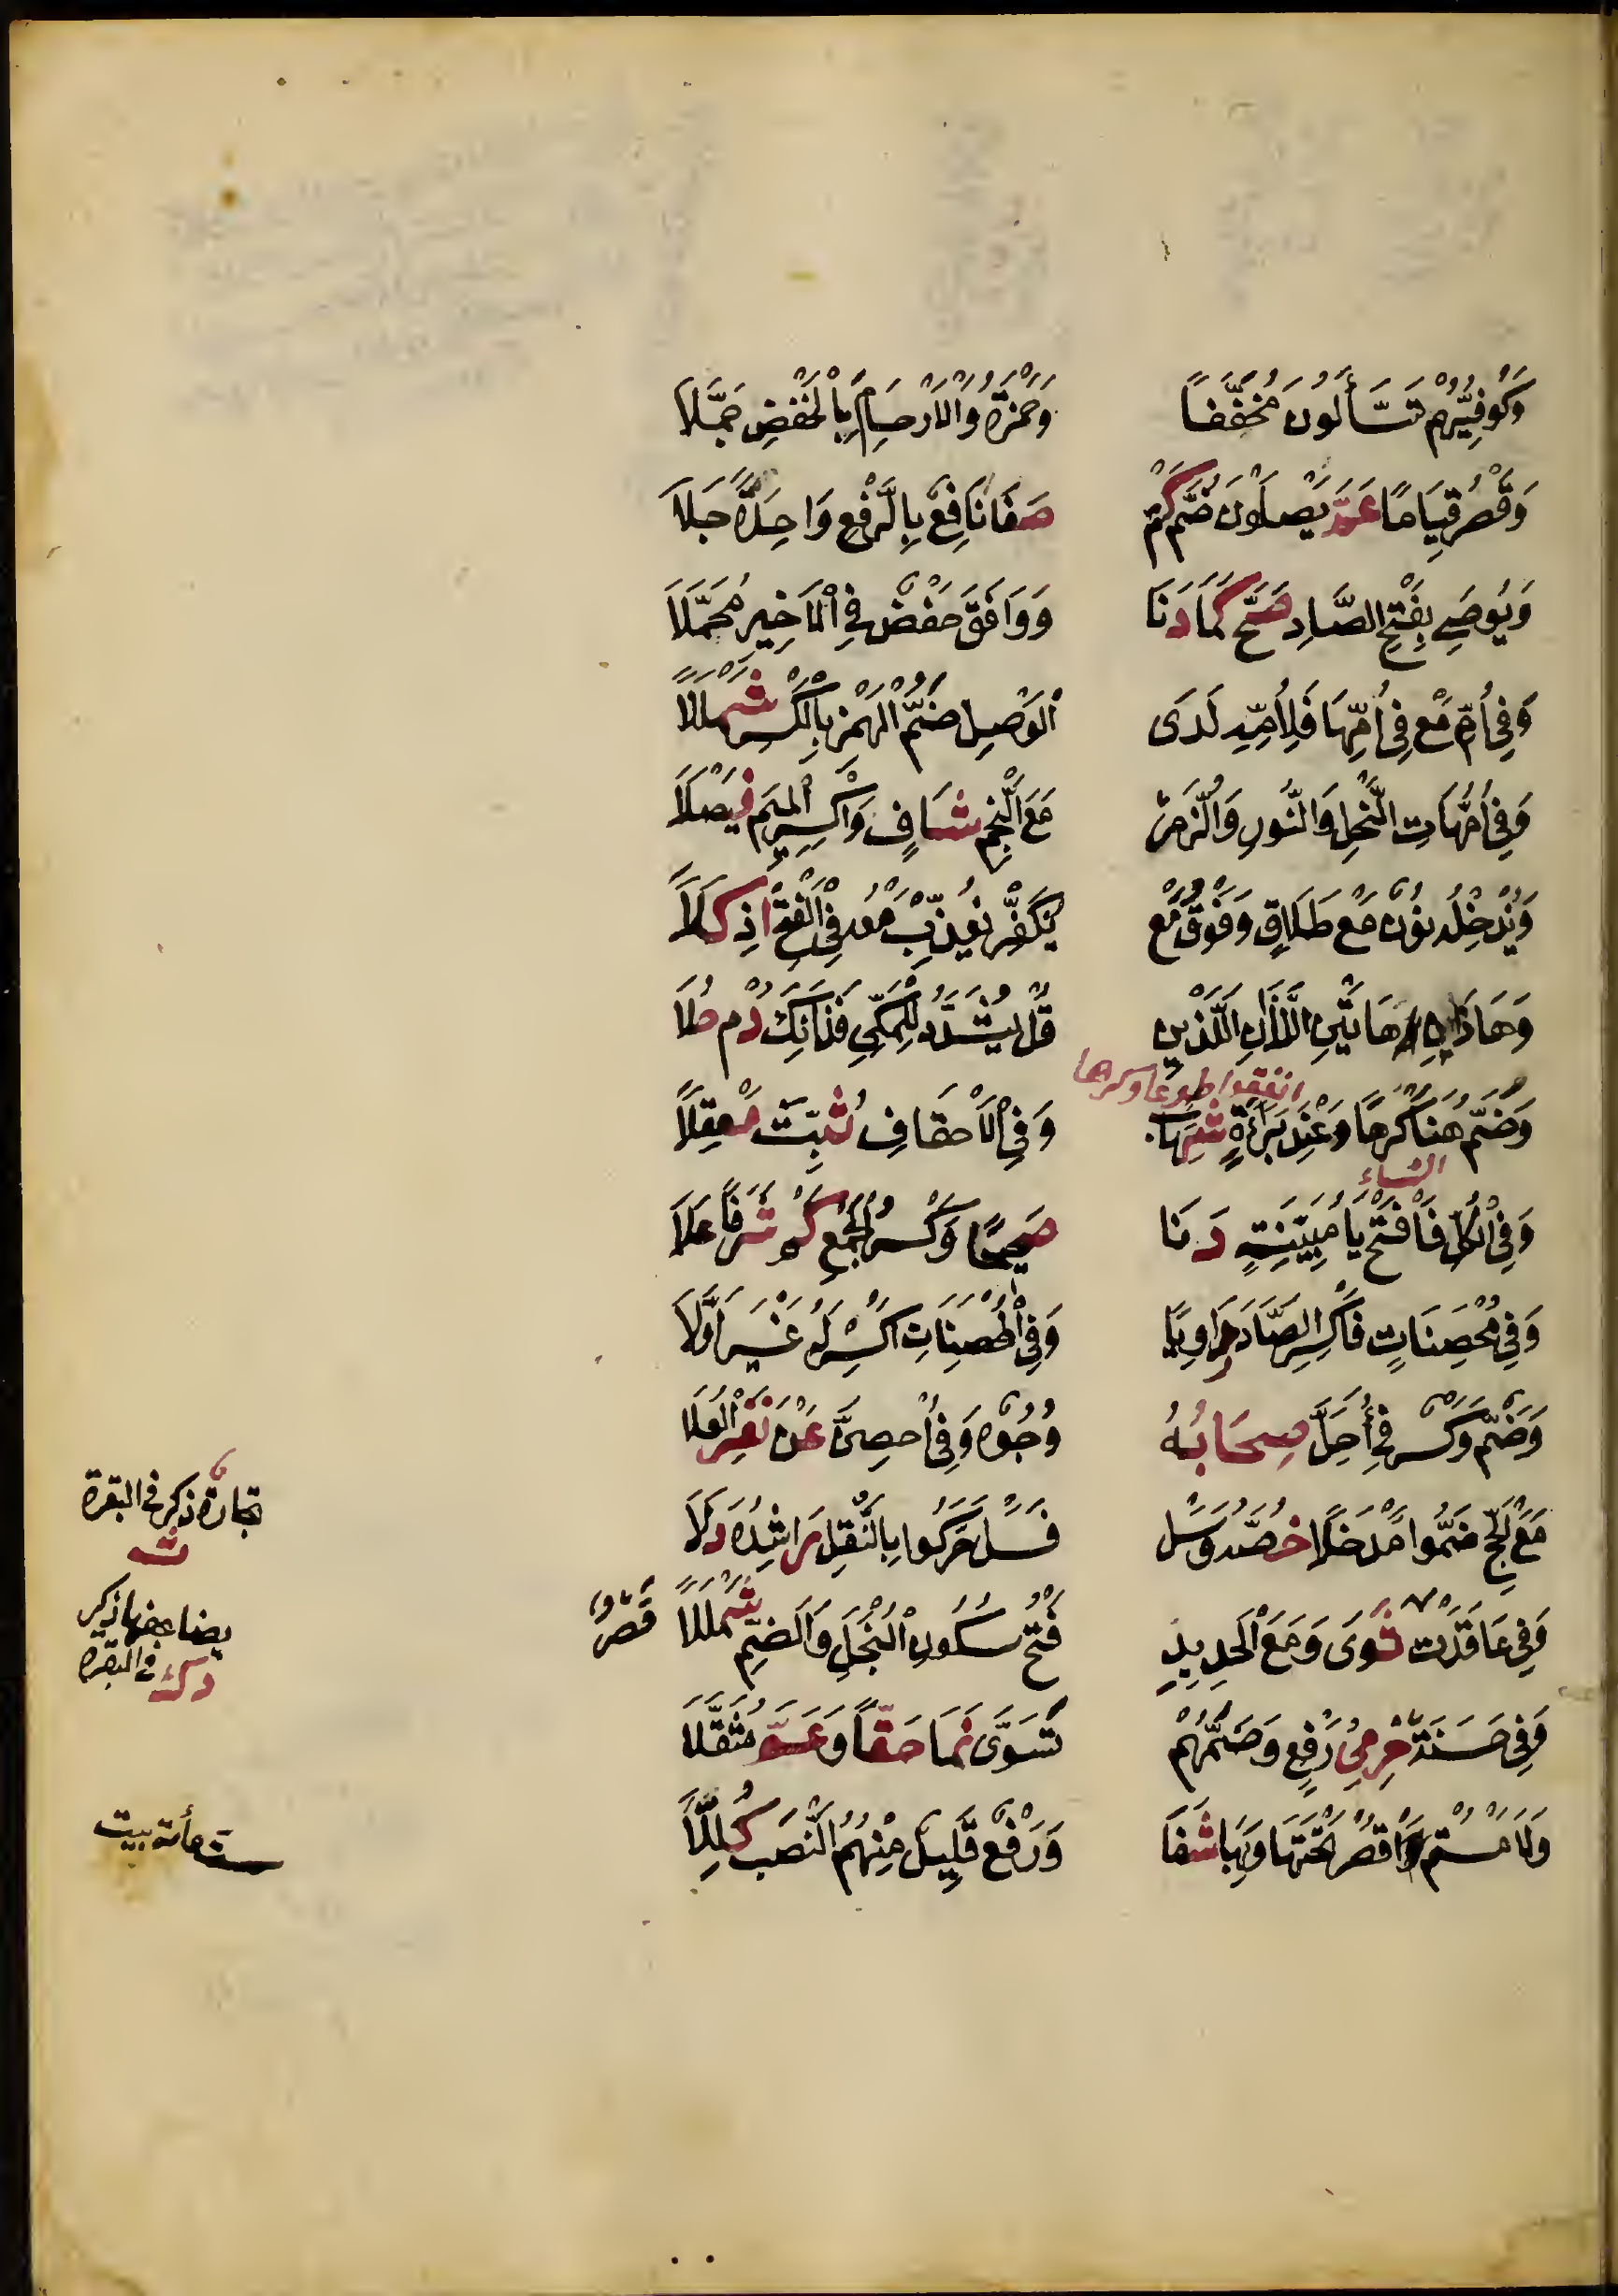 وَكُوفِيُّهُمْ تَسَّاءَلُونَ مُخَفِّفًا وَحَمْزَةُ وَالْأَرْحَامِ بِالْخَفْضِ جَمَّلَا
وَقَصْرُ قِيَامًا عَمَّ يَصْلَوْنَ ضُمَّ كَمْ صَفَا نَافِعٌ بِالرَّفْعِ وَاحِدَةٌ جَلَا
وَيُوصِي بِفَتْحِ الصَّادِ صَحَّ كَمَا دَنَا وَوَافَقَ حَفْصٌ فِي الْأَخِيرِ مُجَمَّلَا
وَفِي أُمِّ مَعْ فِي أُمِّهَا فَلِأُمِّهِ لَدَى الْوَصْلِ ضَمُّ الْهَمْزِ بِالْكَسْرِ شَمْلَلَا
وَفِي أُمَّهَاتِ النَّحْلِ وَالنُّورِ وَالزُّمَرْ مَعَ النَّجْمِ شَافٍ وَاكْسِرِ الْمِيمَ فَيْصَلَا
وَنُدْخِلْهُ نُونٌ مَعْ طَلَاقٍ وَفَوْقُ مَعْ نُكَفِّرْ نُعَذِّبْ مَعْهُ فِي الْفَتْحِ إِذْ كَلَا
وَهَاذَانِ هَاتَيْنِ اللَّذَانِ اللَّذَيْنِ قُلْ يُشَدَّدُ لِلْمَكِّي فَذَانِكَ دُمْ حُلَا
انفقوا طوعا وكرها
وَضُمَّ هُنَا كَرْهًا وَعِنْدَ بَرَاءَةٍ شِهَابٌ وَفِي الْأَحْقَافِ ثُبِّتَ مَعْقِلَا
النساء
وَفِي الْكُلِّ فَافْتَحْ يَا مُبَيِّنَةٍ دَنَا صَحِيحًا وَكَسْرُ الْجَمْعِ كَمْ شَرَفًا عَلَا
وَفِي مُحْصَنَاتٍ فَاكْسِرِ الصَّادَ رَاوِيًا وَفِي الْمُحْصَنَاتِ اكْسِرْ لَهُ غَيْرَ أَوَّلَا
وَضَمٌّ وَكَسْرٌ فِي أَحَلَّ صِحَابُهُ وُجُوهٌ وَفِي أُحْصِنَّ عَنْ نَفَرِ الْعُلَا
مَعَ الْحَجِّ ضَمُّوا مَدْخَلًا خُصَّهُ وَسَلْ فَسَلْ حَرَّكُوا بِالنَّقْلِ رَاشِدُهُ دَلَا
تجارة ذكر في البقرة
ث
وَفِي عَاقَدَتْ ثَوَى وَمَعَ الْحَدِيدِ فَتْحُ سُكُونِ الْبُخْلِ وَالضَّمِّ شَمْلَلَا
قصر
يضاعفها ذكر
في البقرة
د ك
وَفِي حَسَنَةٌ حِرْمِيُّ رَفْعٍ وَضَمُّهُمْ تَسَوَّى نَمَا حَقًّا وَعَمَّ مُثَقَّلَا
وَلَامَسْتُمُ اقْصُرْ تَحْتَهَا وَبِهَا شَفَا وَرَفْعُ قَلِيلٌ مِنْهُمُ النَّصْبَ كُلِّلَا
ستمأئة بيت